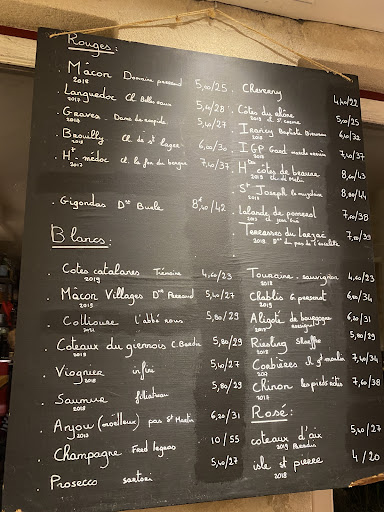 Rouges :
. Mâcon Domaine perraud 5,00/25
2018
. Languedoc Cl. Belles eaux 5,60/28
2017
. Graves Dame de 5,40/27
. Brouilly Cl. de st lager 6,00/30
. Ht-médoc cl. la fon du berger 7,40/37
2017
. Gigondas Dne Burle 8,40/42
. Cheverny 4,40/22
. Côtes du rhône 5,00/25
. Irancy Baptiste 6,40/32
. IGP Gard 7,40/37
2018
. Hte côtes de beaune 8,60/43
. St Joseph 8,80/44
. Lalande de pomerol 7,60/38
. Terrasses du Larzac 7,80/39
2018
Blancs :
. Cotes catalanes 4,60/23
2019
. Mâcon Villages Dne Perraud 5,40/27
2019
. Collioure l'abbé rous 5,80/29
. Coteaux du giennois 5,80/29
2019
. Viognier infini 5,40/27
2018
. Saumur filliatreau 5,80/29
2018
. Anjou (moelleux) pas St Martin 6,20/31
2013
. Champagne Fred legras 10/55
. Prosecco sartori 5,40/27
. Touraine . sauvignon 4,60/23
2018
. Chablis G. 6,80/34
2018
. Aligoté de bourgogne 6,20/31
. Riesling 5,80/29
2018
. Corbières st 7,40/36
. Chinon les pieds rôtis 7,60/38
2018
Rosé :
. coteaux d'aix 5,40/27
2019
. isle st pierre 4/20
2018